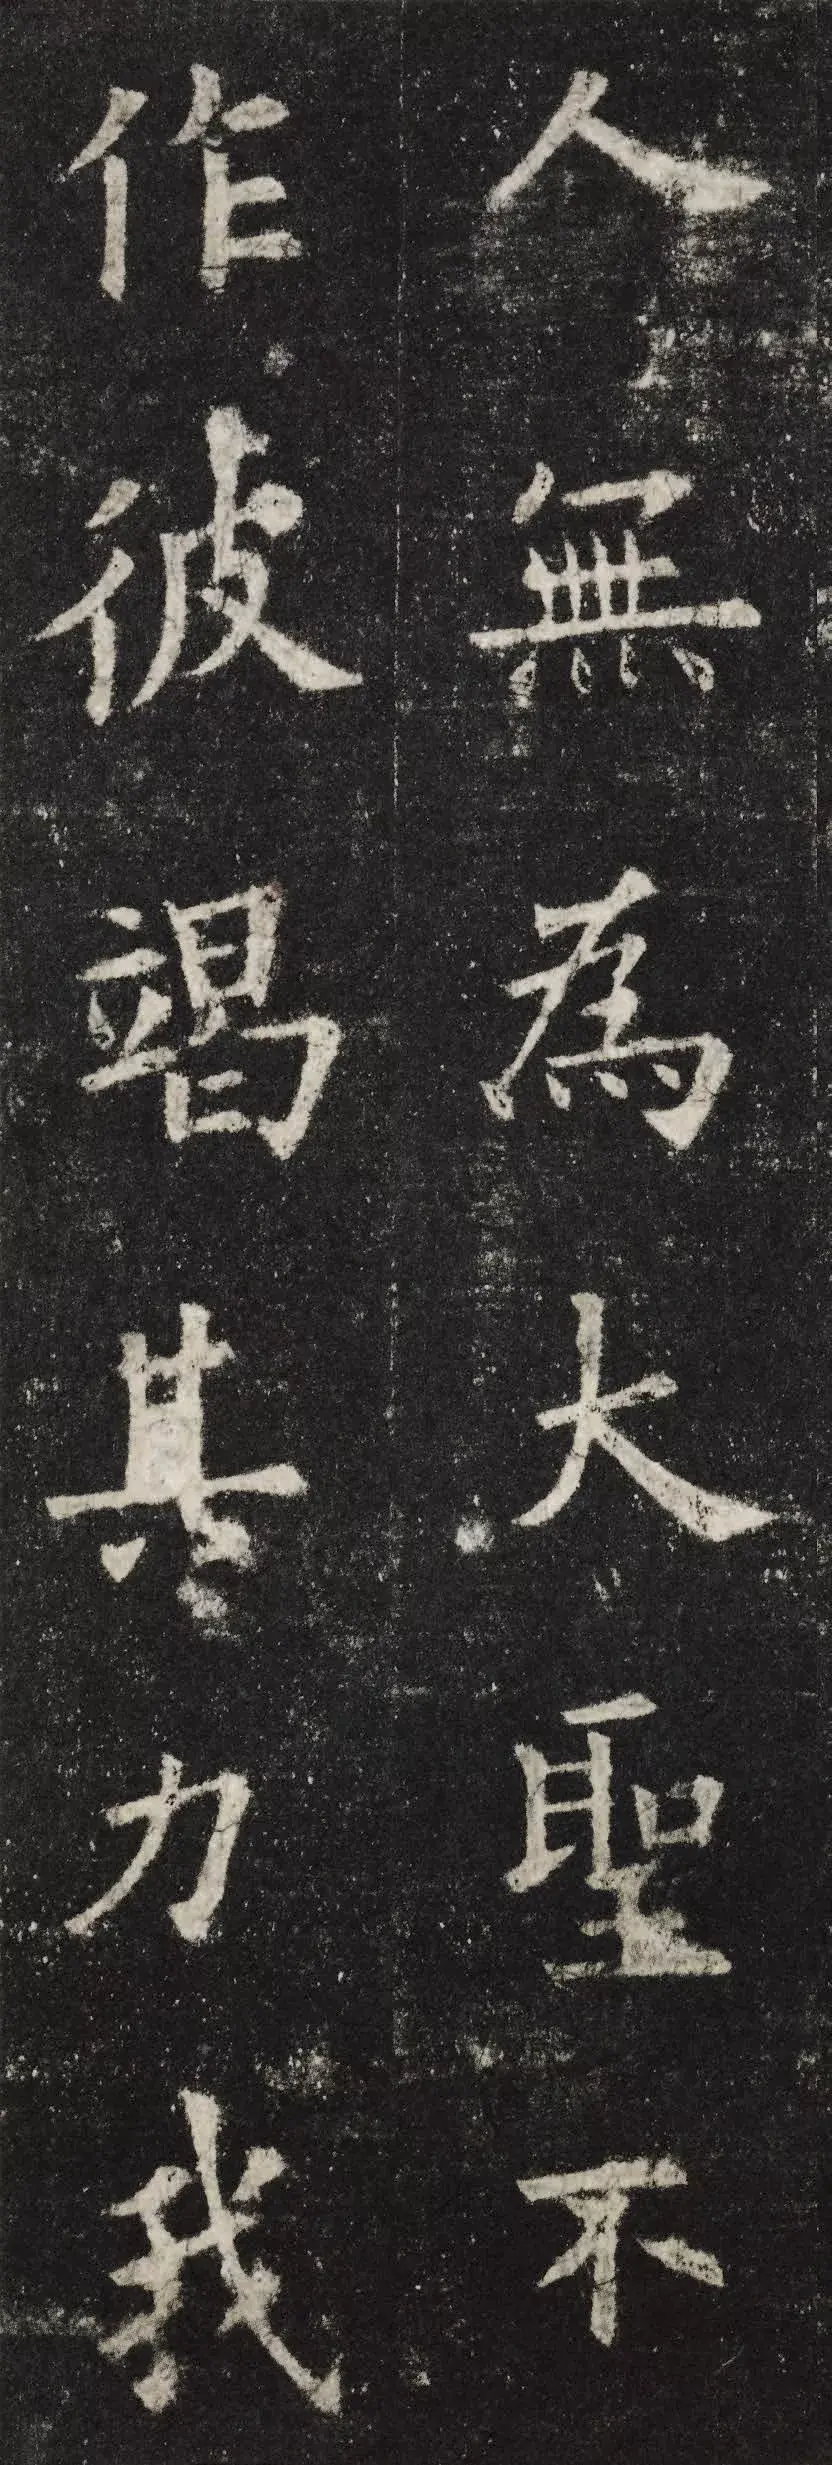 人無為大聖不
作彼竭其力我